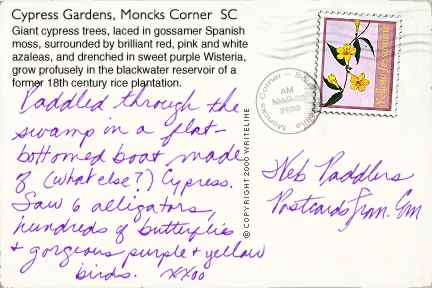 Cypress Gardens, Moncks Corner SC
Giant cypress trees, laced in gossamer Spanish
moss, surrounded by brilliant red, pink and white
azaleas, and drenched in sweet purple Wisteria,
grow profusely in the blackwater reservoir of a
former 18th century rice plantation.
Paddled through the
swamp in a flat-
bottomed boat made
of (what else?) Cypress.
Saw 6 alligators,
hundreds of butterflies
+ gorgeous purple + yellow
birds. xxoo
© COPYRIGHT 2000 WRITELINE
Moncks Corner
AM
2000
Yellow Jessamine
Web Paddlers
Postcards From.Com